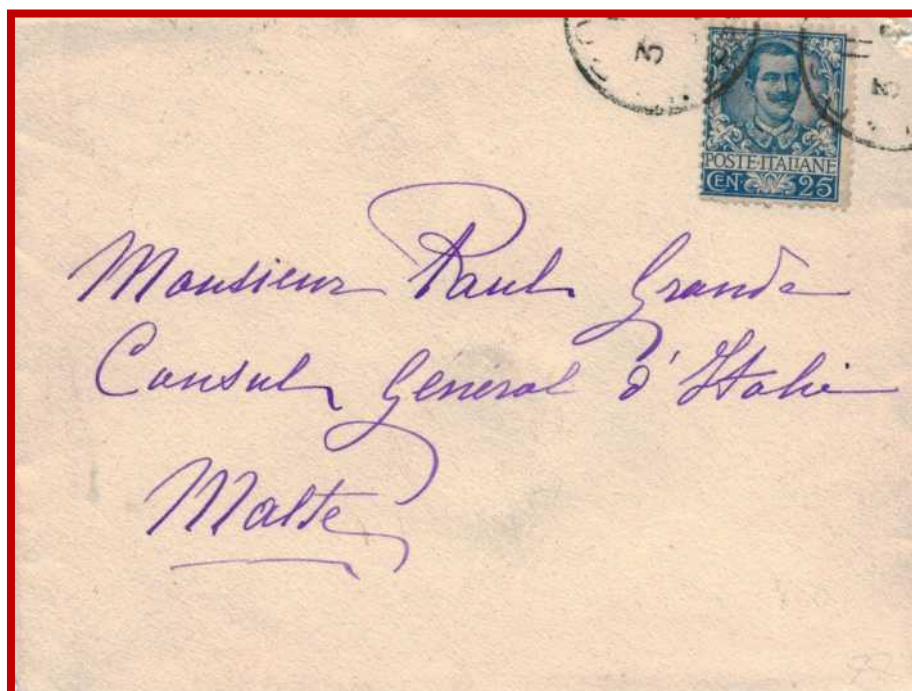 POSTE·ITALIANE
CEN 25
Monsieur Paul Grande
Consul Général d'Italie
Malte